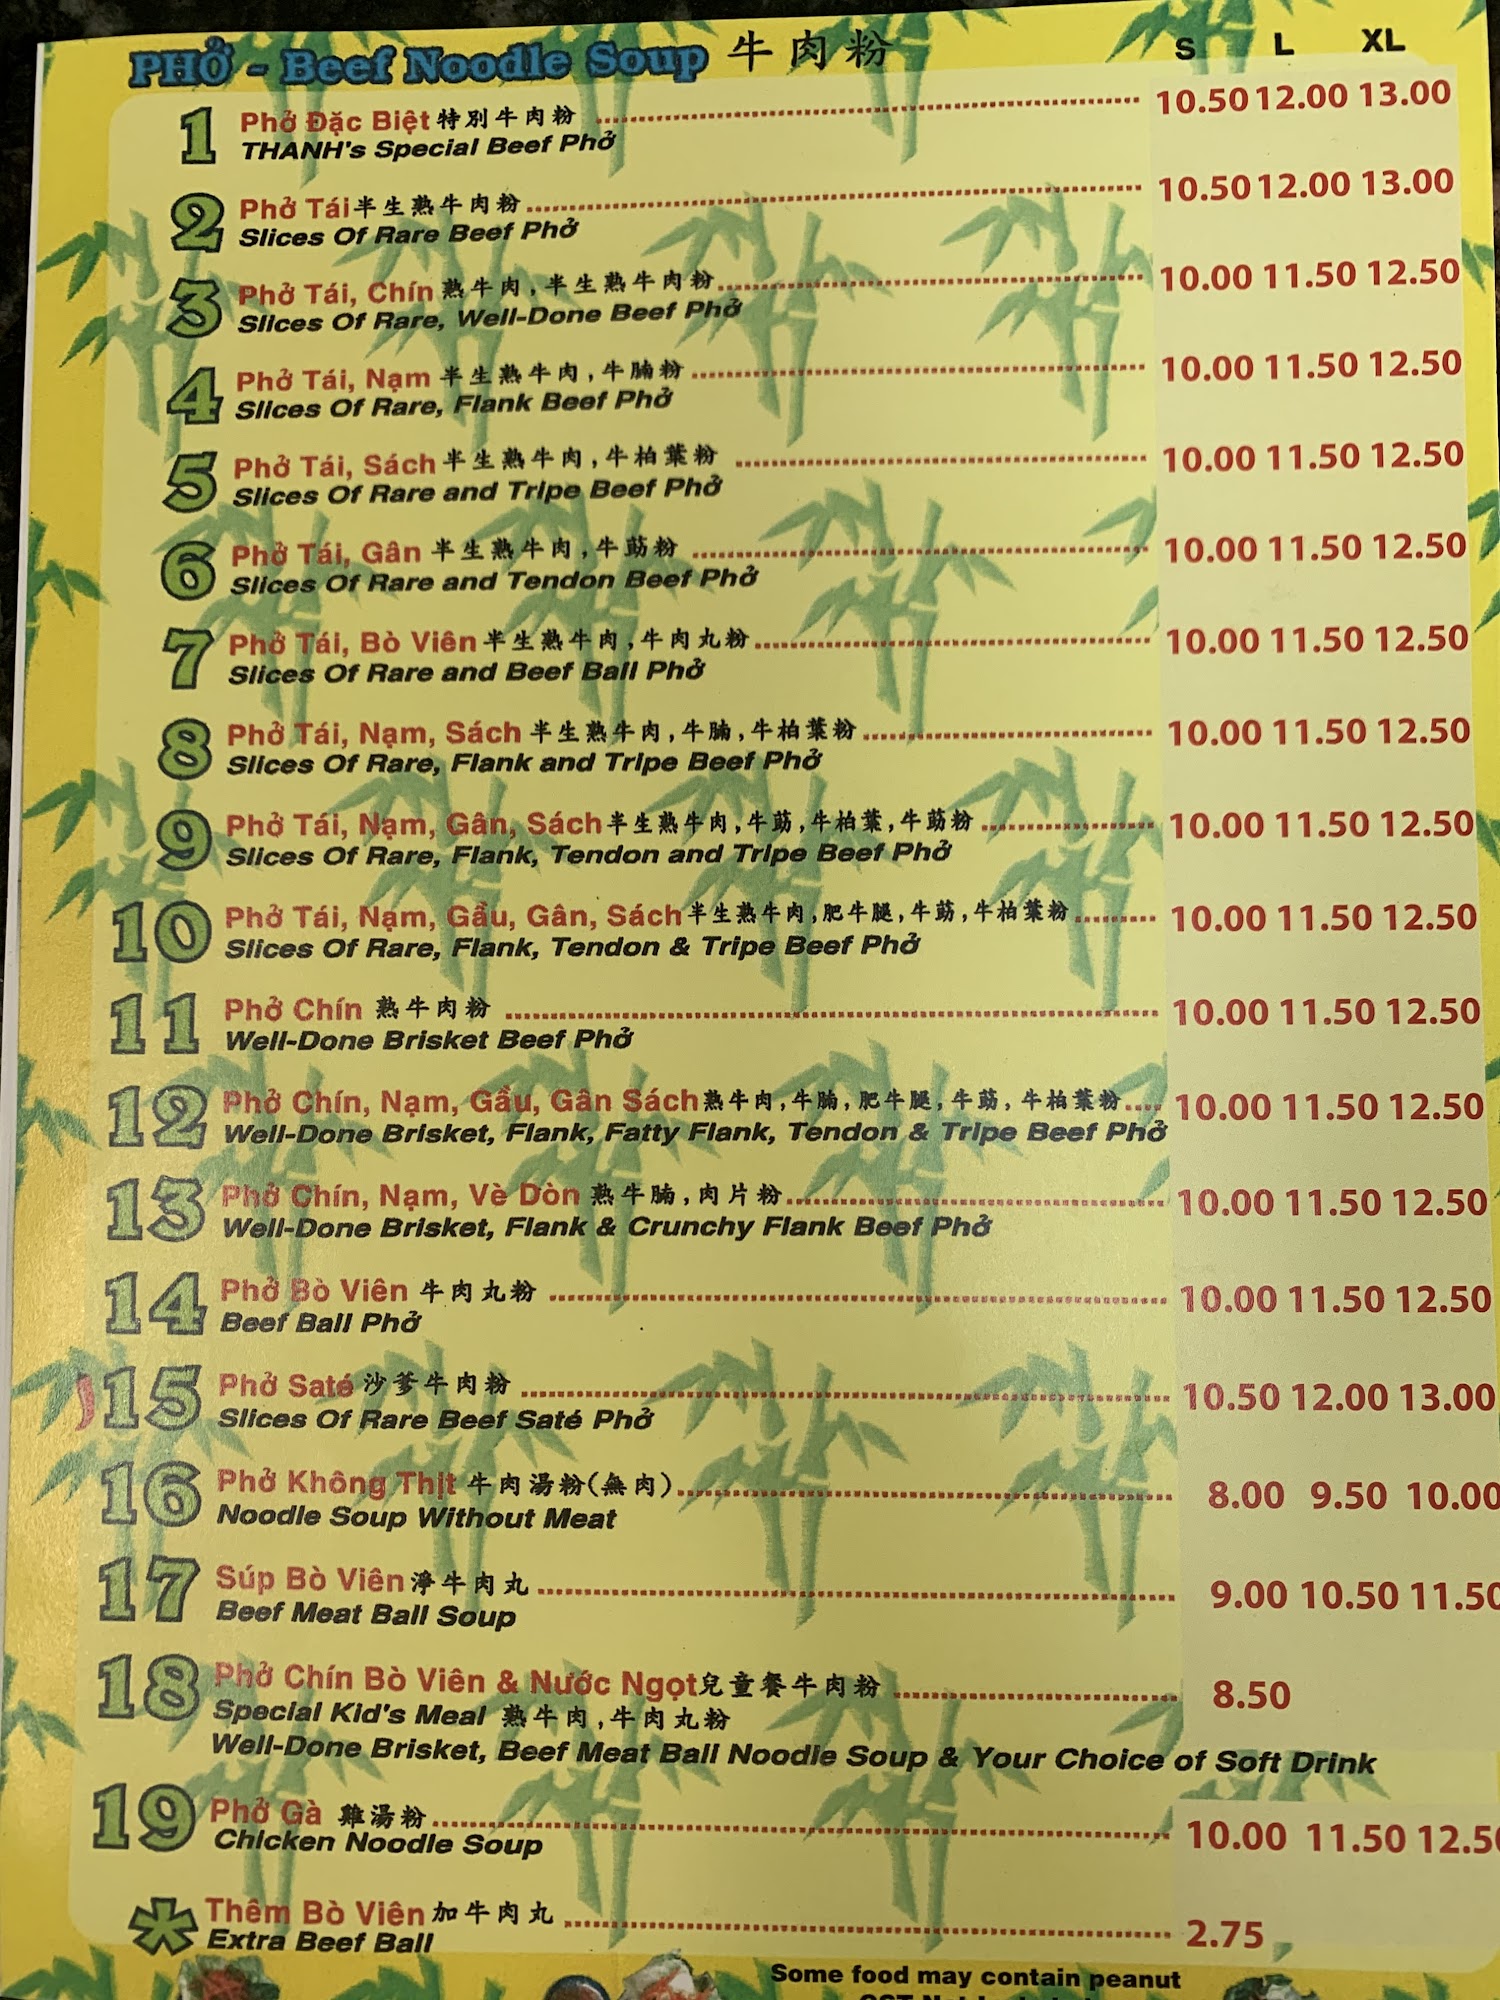 PHỞ - Beef Noodle Soup 牛肉粉 S L XL
1 Phở Đặc Biệt 特別牛肉粉 10.50 12.00 13.00
THANH's Special Beef Phở
2 Phở Tái 半生熟牛肉粉 10.50 12.00 13.00
Slices Of Rare Beef Phở
3 Phở Tái, Chín 熟牛肉,半生熟牛肉粉 10.00 11.50 12.50
Slices Of Rare, Well-Done Beef Phở
4 Phở Tái, Nạm 半生熟牛肉,牛腩粉 10.00 11.50 12.50
Slices Of Rare, Flank Beef Phở
5 Phở Tái, Sách 半生熟牛肉,牛柏葉粉 10.00 11.50 12.50
Slices Of Rare and Tripe Beef Phở
6 Phở Tái, Gân 半生熟牛肉,牛莇粉 10.00 11.50 12.50
Slices Of Rare and Tendon Beef Phở
7 Phở Tái, Bò Viên 半生熟牛肉,牛肉丸粉 10.00 11.50 12.50
Slices Of Rare and Beef Ball Phở
8 Phở Tái, Nạm, Sách 半生熟牛肉,牛腩,牛柏葉粉 10.00 11.50 12.50
Slices Of Rare, Flank and Tripe Beef Phở
9 Phở Tái, Nạm, Gân, Sách 半生熟牛肉,牛莇,牛柏葉,牛莇粉 10.00 11.50 12.50
Slices Of Rare, Flank, Tendon and Tripe Beef Phở
10 Phở Tái, Nạm, Gầu, Gân, Sách 半生熟牛肉,肥牛腿,牛莇,牛柏葉粉 10.00 11.50 12.50
Slices Of Rare, Flank, Tendon & Tripe Beef Phở
11 Phở Chín 熟牛肉粉 10.00 11.50 12.50
Well-Done Brisket Beef Phở
12 Phở Chín, Nạm, Gầu, Gân Sách 熟牛肉,牛腩,肥牛腿,牛莇,牛柏葉粉 10.00 11.50 12.50
Well-Done Brisket, Flank, Fatty Flank, Tendon & Tripe Beef Phở
13 Phở Chín, Nạm, Vè Dòn 熟牛腩,肉片粉 10.00 11.50 12.50
Well-Done Brisket, Flank & Crunchy Flank Beef Phở
14 Phở Bò Viên 牛肉丸粉 10.00 11.50 12.50
Beef Ball Phở
15 Phở Saté 沙爹牛肉粉 10.50 12.00 13.00
Slices Of Rare Beef Saté Phở
16 Phở Không Thịt 牛肉湯粉(無肉) 8.00 9.50 10.00
Noodle Soup Without Meat
17 Súp Bò Viên 淨牛肉丸 9.00 10.50 11.50
Beef Meat Ball Soup
18 Phở Chín Bò Viên & Nước Ngọt 兒童餐牛肉粉 8.50
Special Kid's Meal 熟牛肉,牛肉丸粉
Well-Done Brisket, Beef Meat Ball Noodle Soup & Your Choice of Soft Drink
19 Phở Gà 雞湯粉 10.00 11.50 12.50
Chicken Noodle Soup
* Thêm Bò Viên 加牛肉丸 2.75
Extra Beef Ball
Some food may contain peanut